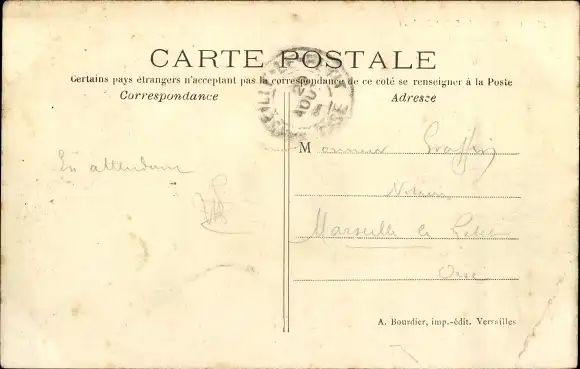 CARTE POSTALE
Certains pays étrangers n'acceptant pas la correspondance de ce coté se renseigner à la Poste
Correspondance
Adresse
En attendant
Monsieur Graffin
Notaire
Marseille le Petit
Oise
A. Bourdier, imp.-édit. Versailles